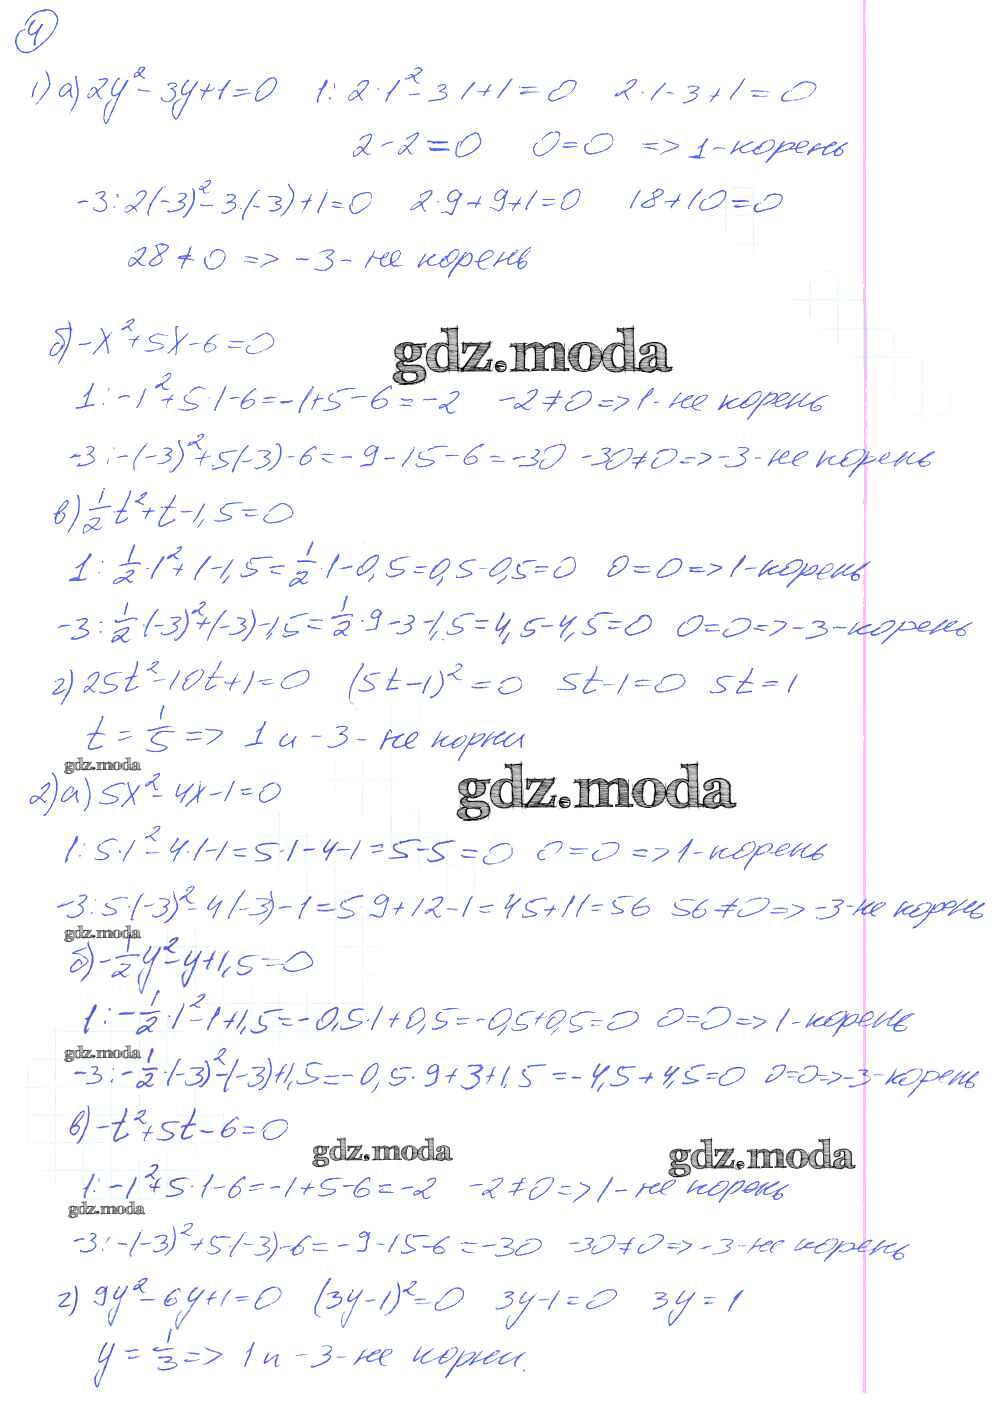 4
1) а) 2y² - 3y + 1 = 0 1: 2·1² - 3·1 + 1 = 0 2·1 - 3 + 1 = 0
2 - 2 = 0 0 = 0 => 1 - корень
-3: 2(-3)² - 3·(-3) + 1 = 0 2·9 + 9 + 1 = 0 18 + 10 = 0
28 ≠ 0 => -3 - не корень
б) -x² + 5x - 6 = 0
gdz.moda
1: -1² + 5·1 - 6 = -1 + 5 - 6 = -2 -2 ≠ 0 => 1 - не корень
-3: -(-3)² + 5(-3) - 6 = -9 - 15 - 6 = -30 -30 ≠ 0 => -3 - не корень
в) 1/2 t² + t - 1,5 = 0
1: 1/2·1² + 1 - 1,5 = 1/2·1 - 0,5 = 0,5 - 0,5 = 0 0 = 0 => 1 - корень
-3: 1/2·(-3)² + (-3) - 1,5 = 1/2·9 - 3 - 1,5 = 4,5 - 4,5 = 0 0 = 0 => -3 - корень
г) 25t² - 10t + 1 = 0 (5t - 1)² = 0 5t - 1 = 0 5t = 1
t = 1/5 => 1 и -3 - не корни
gdz.moda
gdz.moda
2) а) 5x² - 4x - 1 = 0
1: 5·1² - 4·1 - 1 = 5·1 - 4 - 1 = 5 - 5 = 0 0 = 0 => 1 - корень
-3: 5·(-3)² - 4(-3) - 1 = 5·9 + 12 - 1 = 45 + 11 = 56 56 ≠ 0 => -3 - не корень
gdz.moda
б) -1/2 y² - y + 1,5 = 0
1: -1/2·1² - 1 + 1,5 = -0,5·1 + 0,5 = -0,5 + 0,5 = 0 0 = 0 => 1 - корень
gdz.moda
-3: -1/2·(-3)² - (-3) + 1,5 = -0,5·9 + 3 + 1,5 = -4,5 + 4,5 = 0 0 = 0 => -3 - корень
в) -t² + 5t - 6 = 0
gdz.moda
gdz.moda
1: -1² + 5·1 - 6 = -1 + 5 - 6 = -2 -2 ≠ 0 => 1 - не корень
gdz.moda
-3: -(-3)² + 5(-3) - 6 = -9 - 15 - 6 = -30 -30 ≠ 0 => -3 - не корень
г) 9y² - 6y + 1 = 0 (3y - 1)² = 0 3y - 1 = 0 3y = 1
y = 1/3 => 1 и -3 - не корни.